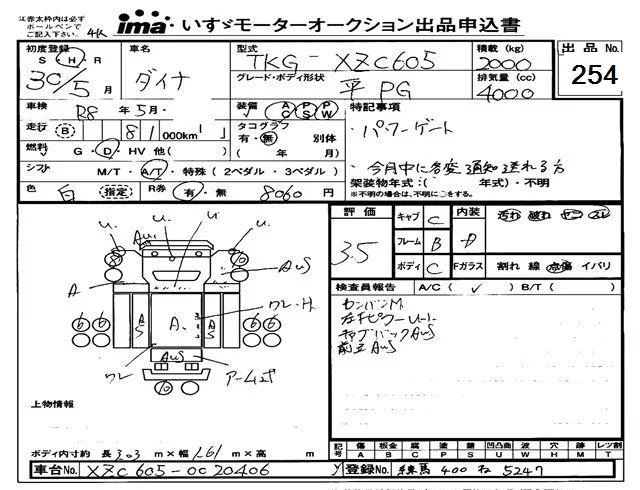 ※赤太枠内は必ず
ボールペンで
ご記入下さい。 4K
ima いすゞモーターオークション出品申込書
初度登録 車名 型式 積載 (kg) 出品 No.
S・H・R ダイナ TKG-XZC605 2000 254
30/5月 グレード・ボディ形状 平 PG 排気量 (cc) 4000
車検 R8 年 5月 装備 AC PS PW 特記事項
走行 (B) 81 000km タコグラフ 有・無 別体 ・パワーゲート
燃料 G・D・HV 他( ) ( 年 月)
シフト M/T・A/T・特殊(2ペダル・3ペダル) ・今月中に名変通知送れる方
架装物年式:( 年式)・不明
※不明の場合は、不明に○をする。
色 白 (指定) R券 有・無 8060 円
評価 3.5 キャブ C 内装 D 汚れ 破れ ヤニ スレ
フレーム B
ボディ C Fガラス 割れ 線 点傷 イバリ
検査員報告 A/C( ✓ ) B/T( )
センバンM.
キャブバックAuS
前立AuS
U. U.
Au
A AuS
ワレ・H
A S A. A S
6 6 6 6
AuS
ワレ
10
上物情報
ボディ内寸約 長 3.03 m × 幅 1.61 m × 高 m
記号 傷 A 板金 B 腐 C 塗 P 錆 S 凹 U 凸凹曲 W 穴 H 跡 M レツ割 T
車台No. XZC605-0020406 登録No. 練馬 400 ね 5247